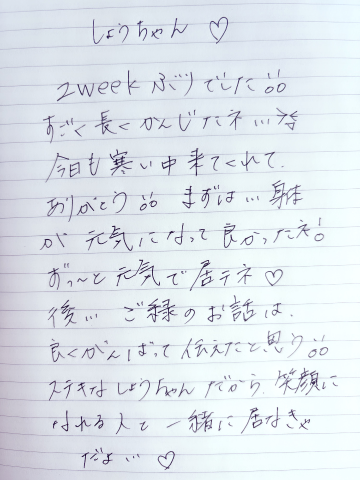 しょうちゃん ♡
2weekぶりでした!!
すごく長くかんじたネ…
今日も寒い中来てくれて、
ありがとう!! まずは… 身体
が 元気になって良かったネ!
ずっ〜と元気で居テネ♡
後… ご縁のお話は、
良くがんばって伝えたと思う!!
ステキなしょうちゃんだから、笑顔に
なれる人と一緒に居なきゃ
だよ… ♡